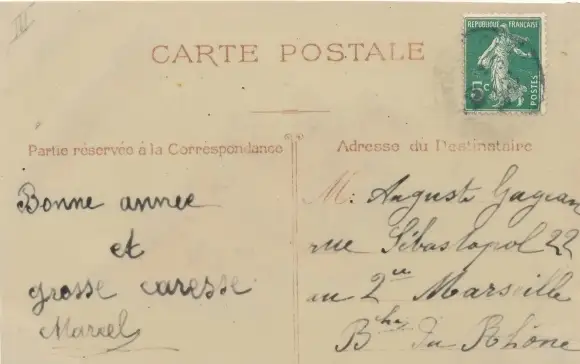 III
CARTE POSTALE
REPUBLIQUE FRANÇAISE
5c
POSTES
Partie réservée à la Correspondance
Adresse du Destinataire
Bonne annee
et
grosse caresse
Marcel
M: Auguste Gagean
rue Sébastopol 22
au 2
Marseille
Bches du Rhône